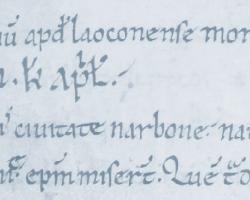 apd̄ laoconense mon
. kł apł̄.
ciuitate narbone. nat
ep̄m misert̄. Que